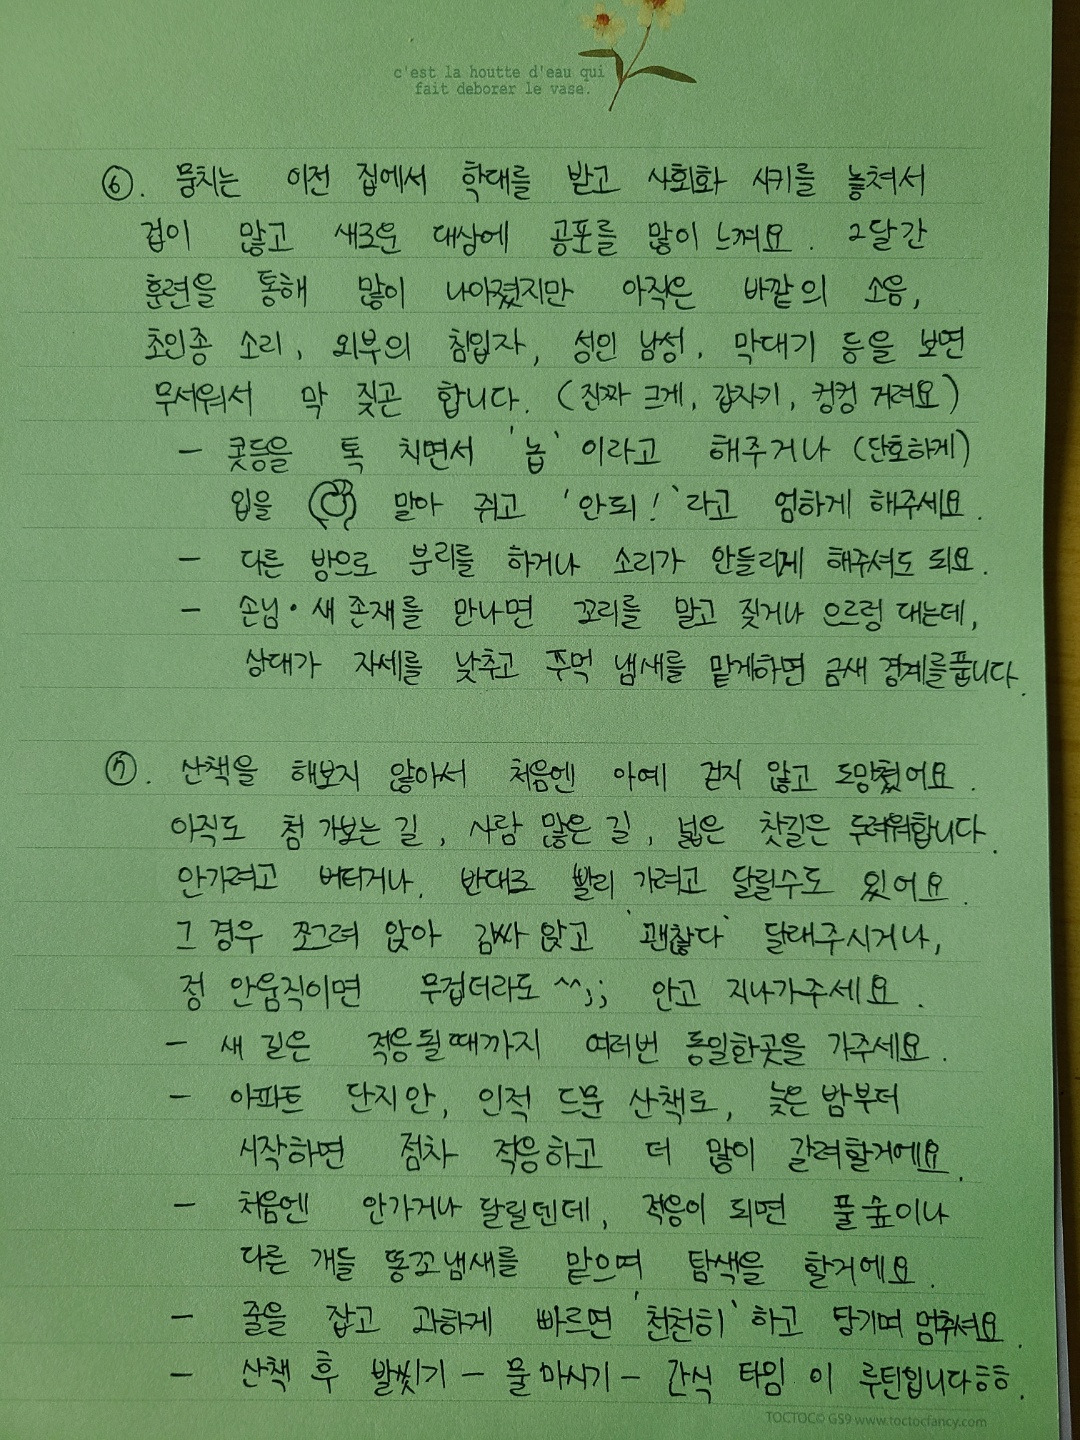 c'est la houtte d'eau qui
fait deborer le vase.
⑥. 뭉치는 이전 집에서 학대를 받고 사회화 시키를 놓쳐서
겁이 많고 새로운 대상에 공포를 많이 느껴요. 2달간
훈련을 통해 많이 나아졌지만 아직은 바깥의 소음,
초인종 소리, 외부의 침입자, 성인 남성, 막대기 등을 보면
무서워서 막 짖곤 합니다. (진짜 크게, 갑자기, 컹컹 거려요)
- 콧등을 톡 치면서 '놉' 이라고 해주거나 (단호하게)
입을 말아 쥐고 '안되!'라고 엄하게 해주세요.
- 다른 방으로 분리를 하거나 소리가 안들리게 해주셔도 되요.
- 손님·새 존재를 만나면 꼬리를 말고 짖거나 으르렁 대는데,
상대가 자세를 낮추고 주먹 냄새를 맡게하면 금새 경계를 풉니다.
⑦. 산책을 해보지 않아서 처음엔 아예 걷지 않고 도망쳤어요.
아직도 첨 가보는 길, 사람 많은 길, 넓은 찻길은 두려워합니다.
안가려고 버티거나, 반대로 빨리 가려고 달릴수도 있어요.
그 경우 쪼그려 앉아 감싸 앉고 '괜찮다' 달래주시거나,
정 안움직이면 무겁더라도 ^^;; 안고 지나가주세요.
- 새 길은 적응될때까지 여러번 동일한곳을 가주세요.
- 아파트 단지안, 인적 드문 산책로, 늦은 밤부터
시작하면 점차 적응하고 더 많이 갈려할거에요.
- 처음엔 안가거나 달릴텐데, 적응이 되면 풀숲이나
다른 개들 똥꼬냄새를 맡으며 탐색을 할거에요.
- 줄을 잡고 과하게 빠르면 '천천히' 하고 당기며 멈춰셔요.
- 산책 후 발씻기 - 물 마시기 - 간식 타임 이 루틴입니다ㅎㅎ.
TOCTOC© GS9 www.toctocfancy.com